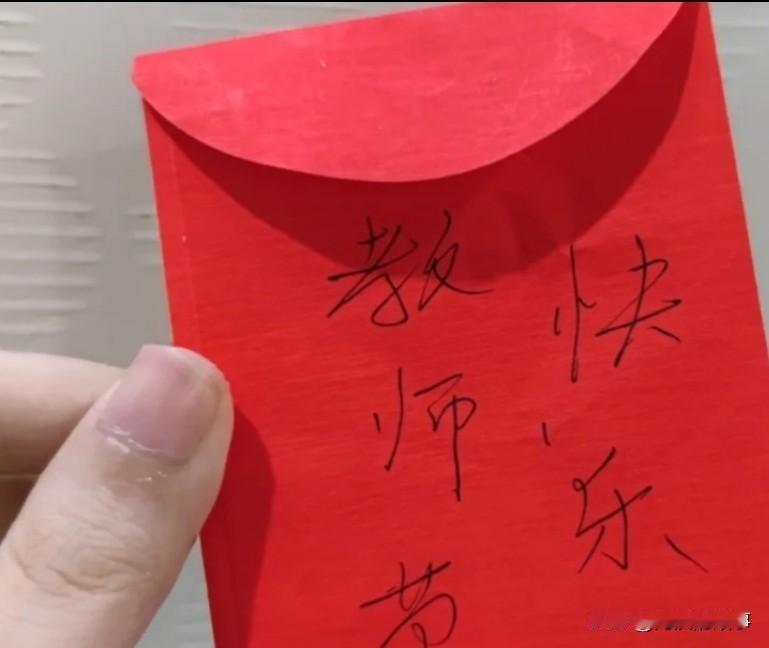 教师
快乐